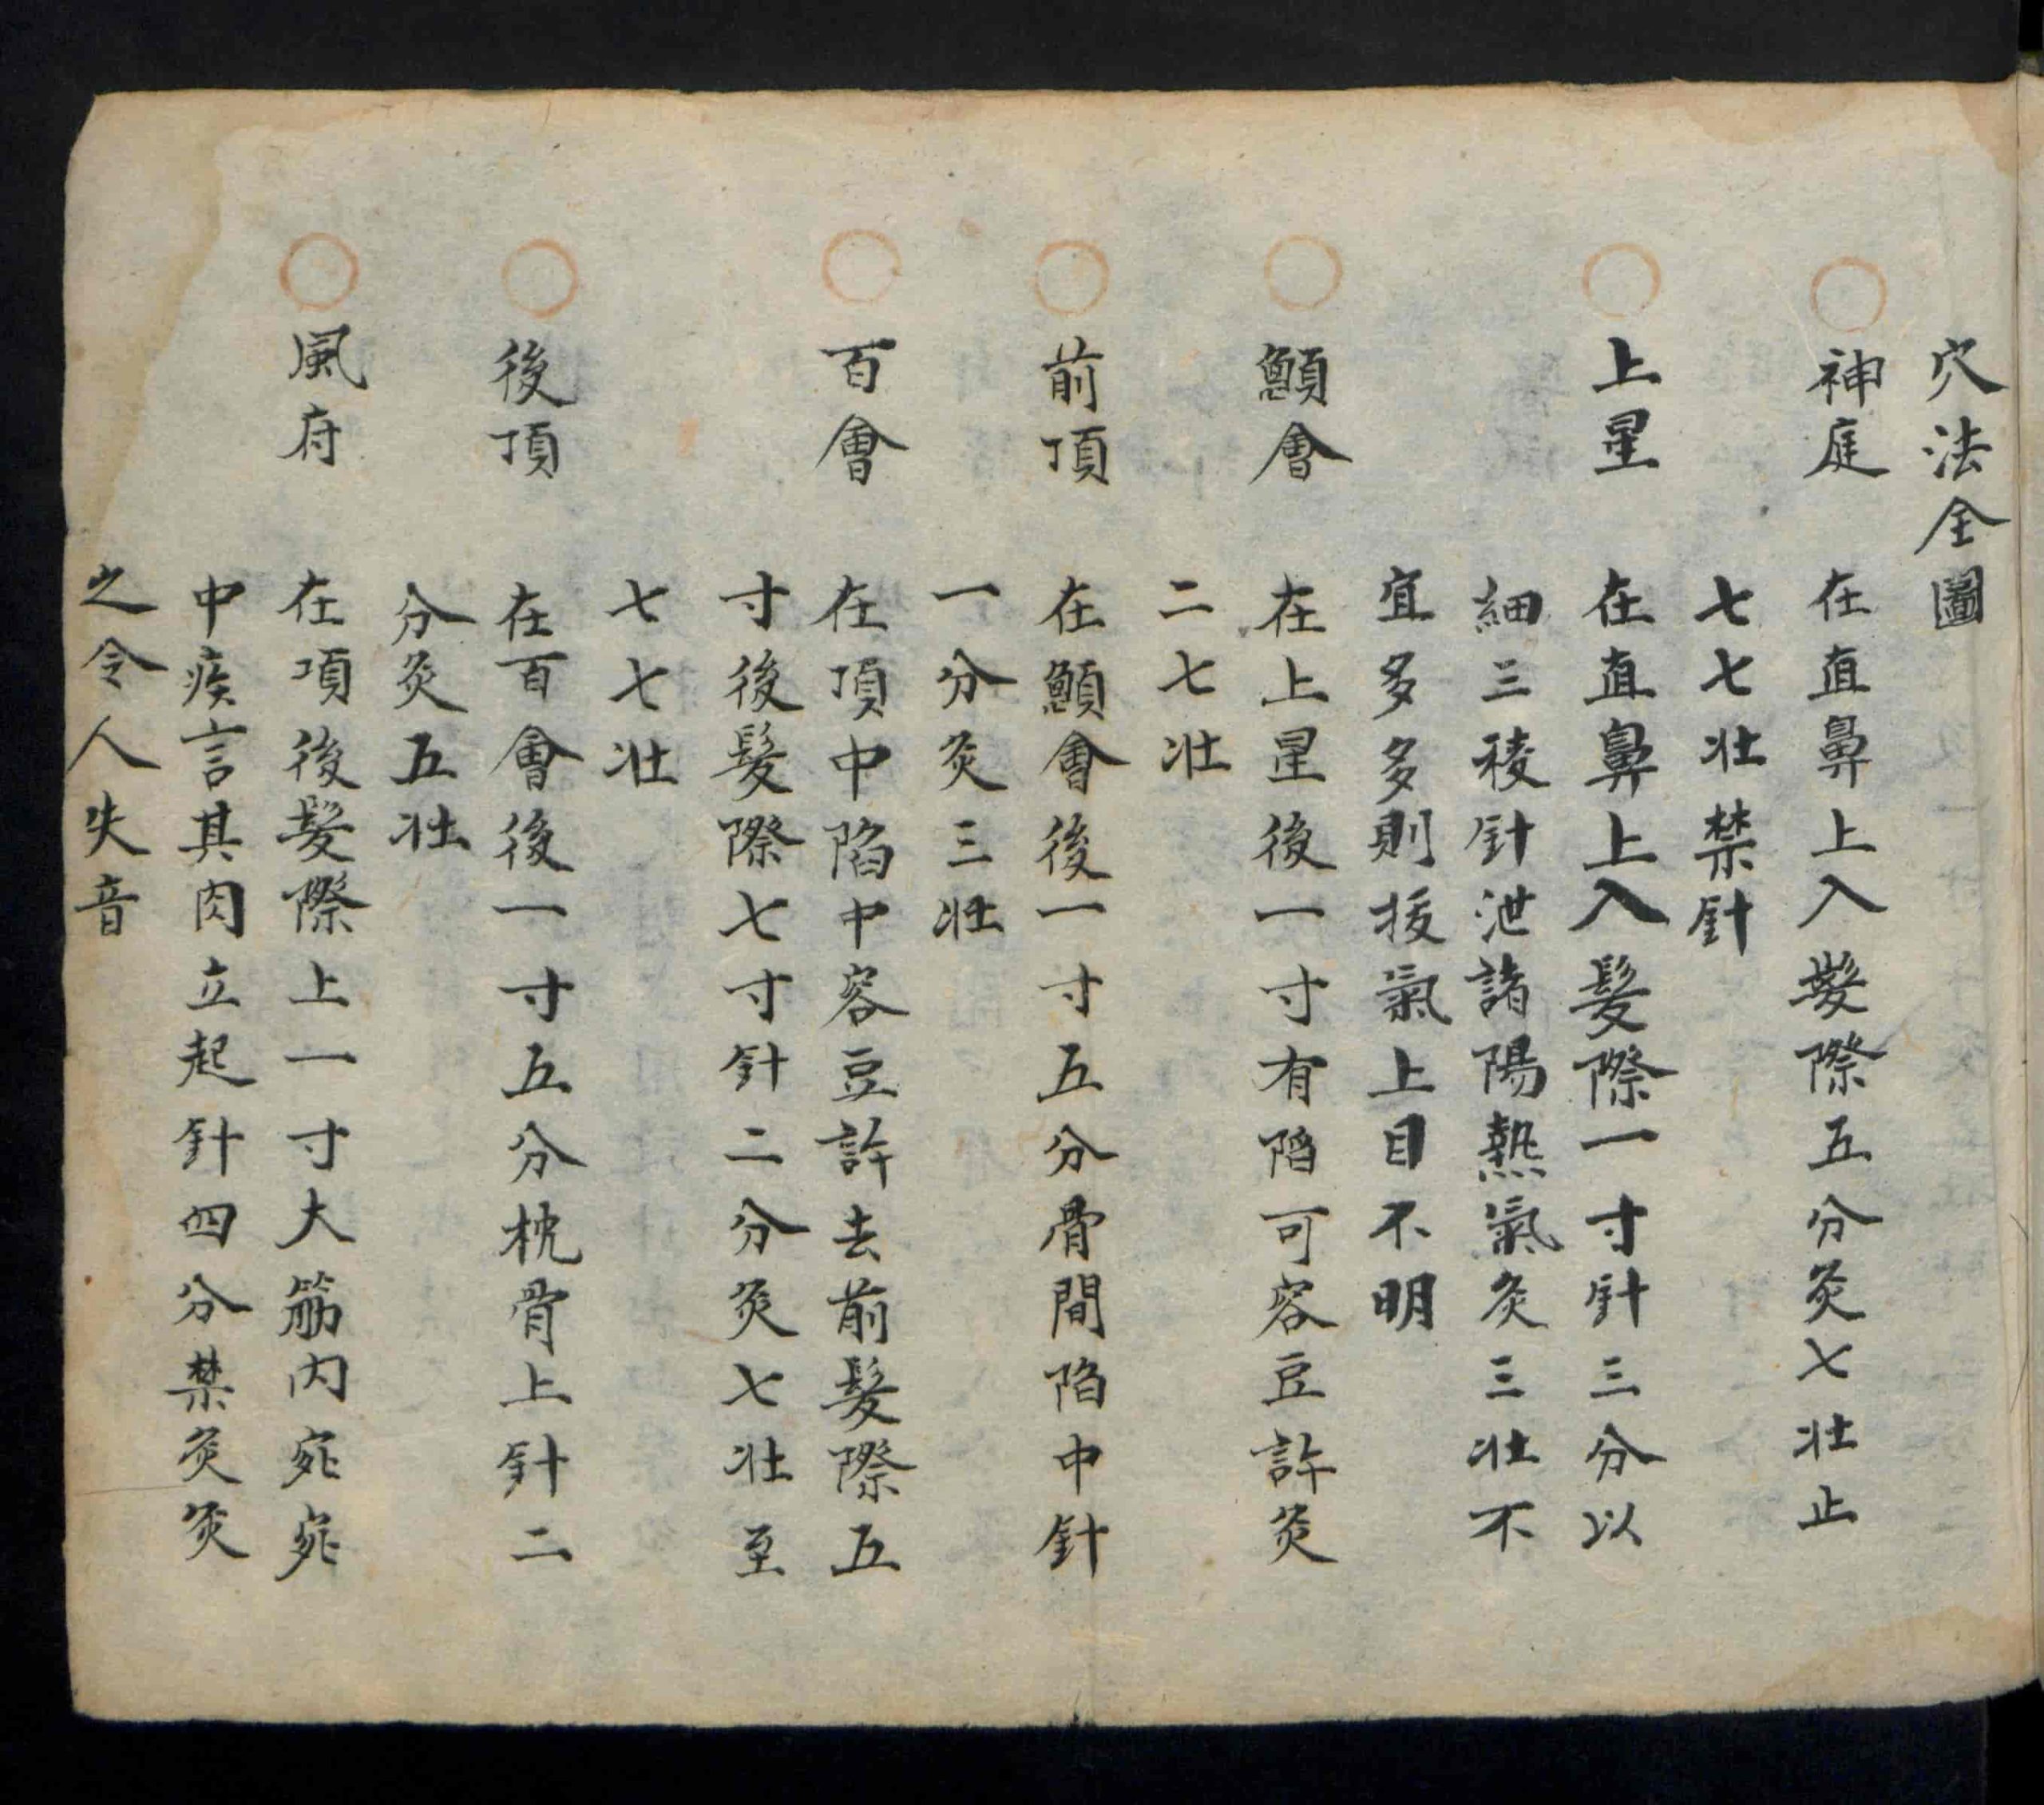 穴法全圖
○神庭 在直鼻上入髮際五分灸七壯止
七七壯禁針
○上星 在直鼻上入髮際一寸針三分以
細三稜針泄諸陽熱氣灸三壯不
宜多多則拔氣上目不明
○顖會 在上星後一寸有陷可容豆許灸
二七壯
○前頂 在顖會後一寸五分骨間陷中針
一分灸三壯
○百會 在頂中陷中容豆許去前髮際五
寸後髮際七寸針二分灸七壯至
七七壯
○後頂 在百會後一寸五分枕骨上針二
分灸五壯
○風府 在項後髮際上一寸大筋內宛宛
中疾言其肉立起針四分禁灸灸
之令人失音